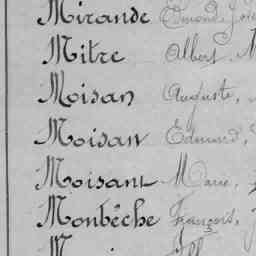 Mirande Edmond, Jose
Mitre Albert, M
Moisan Auguste,
Moisan Edmond,
Moisant Marie,
Monbêche François,